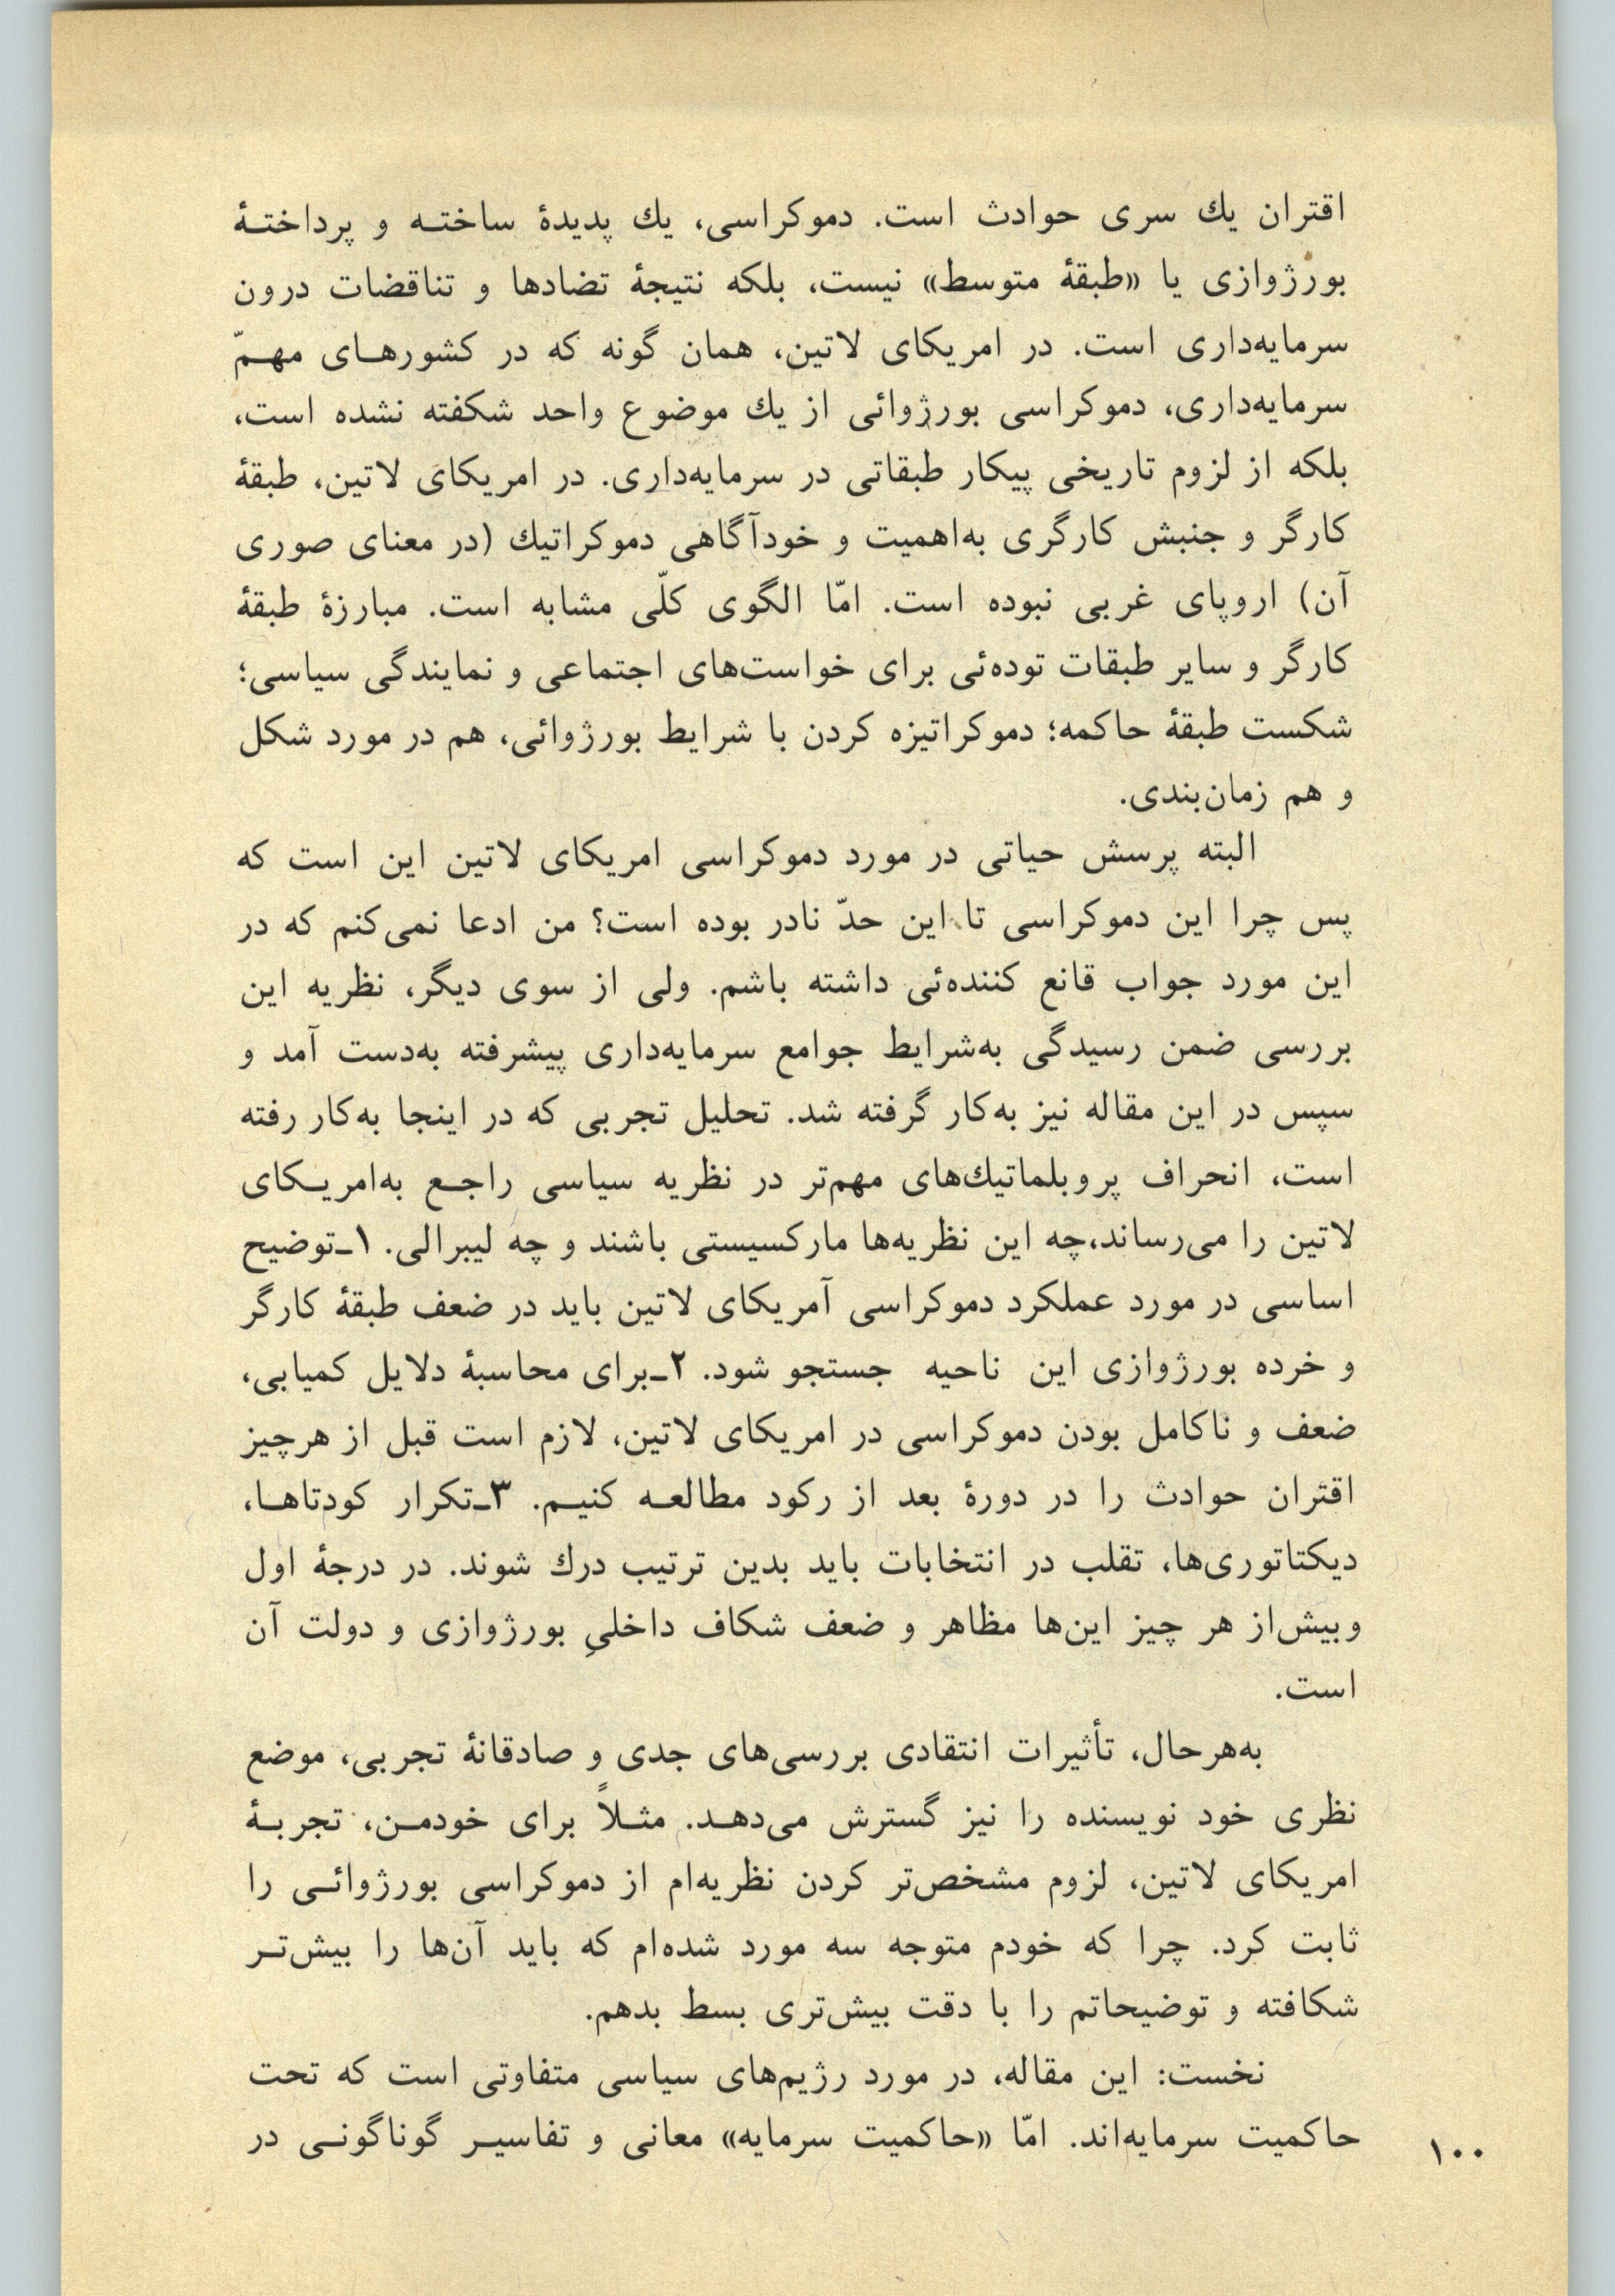 اقتران یك سری حوادث است. دموکراسی، یك پدیدهٔ ساختـه و پرداختـهٔ
بورژوازی یا «طبقهٔ متوسط» نیست، بلکه نتیجهٔ تضادها و تناقضات درون
سرمایه‌داری است. در امریکای لاتین، همان گونه که در کشورهـای مهـمّ
سرمایه‌داری، دموکراسی بورژوائی از یك موضوع واحد شکفته نشده است،
بلکه از لزوم تاریخی پیکار طبقاتی در سرمایه‌داری. در امریکای لاتین، طبقهٔ
کارگر و جنبش کارگری به‌اهمیت و خودآگاهی دموکراتیك (در معنای صوری
آن) اروپای غربی نبوده است. امّا الگوی کلّی مشابه است. مبارزهٔ طبقهٔ
کارگر و سایر طبقات توده‌ئی برای خواست‌های اجتماعی و نمایندگی سیاسی؛
شکست طبقهٔ حاکمه؛ دموکراتیزه کردن با شرایط بورژوائی، هم در مورد شکل
و هم زمان‌بندی.
البته پرسش حیاتی در مورد دموکراسی امریکای لاتین این است که
پس چرا این دموکراسی تا این حدّ نادر بوده است؟ من ادعا نمی‌کنم که در
این مورد جواب قانع کننده‌ئی داشته باشم. ولی از سوی دیگر، نظریه این
بررسی ضمن رسیدگی به‌شرایط جوامع سرمایه‌داری پیشرفته به‌دست آمد و
سپس در این مقاله نیز به‌کار گرفته شد. تحلیل تجربی که در اینجا به‌کار رفته
است، انحراف پروبلماتیك‌های مهم‌تر در نظریه سیاسی راجـع به‌امریـکای
لاتین را می‌رساند،چه این نظریه‌ها مارکسیستی باشند و چه لیبرالی. ۱ـ‌توضیح
اساسی در مورد عملکرد دموکراسی آمریکای لاتین باید در ضعف طبقهٔ کارگر
و خرده بورژوازی این ناحیه جستجو شود. ۲ـ‌برای محاسبهٔ دلایل کمیابی،
ضعف و ناکامل بودن دموکراسی در امریکای لاتین، لازم است قبل از هرچیز
اقتران حوادث را در دورهٔ بعد از رکود مطالعـه کنیـم. ۳ـ‌تکرار کودتاهـا،
دیکتاتوری‌ها، تقلب در انتخابات باید بدین ترتیب درك شوند. در درجهٔ اول
وبیش‌از هر چیز این‌ها مظاهر و ضعف شکاف داخلیِ بورژوازی و دولت آن
است.
به‌هرحال، تأثیرات انتقادی بررسی‌های جدی و صادقانهٔ تجربی، موضع
نظری خود نویسنده را نیز گسترش می‌دهـد. مثـلاً برای خودمـن، تجربـهٔ
امریکای لاتین، لزوم مشخص‌تر کردن نظریه‌ام از دموکراسی بورژوائـی را
ثابت کرد. چرا که خودم متوجه سه مورد شده‌ام که باید آن‌ها را بیش‌تـر
شکافته و توضیحاتم را با دقت بیش‌تری بسط بدهم.
نخست: این مقاله، در مورد رژیم‌های سیاسی متفاوتی است که تحت
حاکمیت سرمایه‌اند. امّا «حاکمیت سرمایه» معانی و تفاسیـر گوناگونـی در
۱۰۰